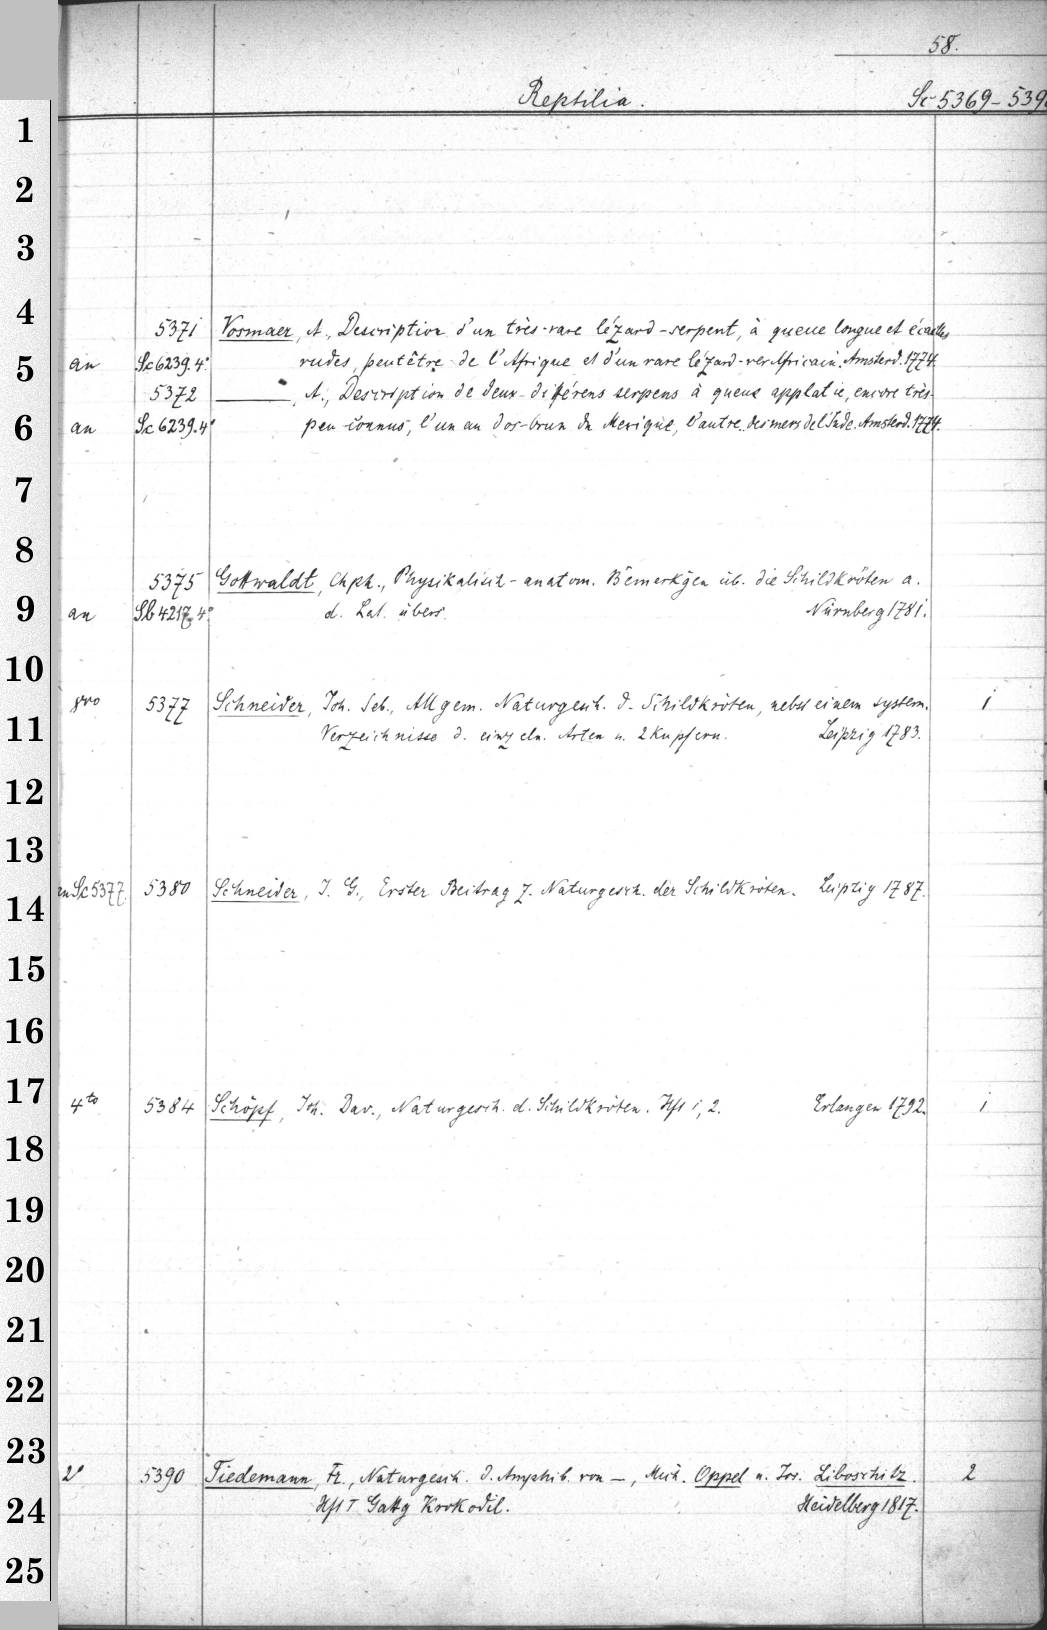 58.
Reptilia. Sc 5369-539
1
2
3
4
5371 Vosmaer, A., Description d'un très-rare lézard-serpent, à queue longue et écailles
5 an Sc 6239.4° rudes, peutêtre de l'Afrique et d'un rare lézard-ver Africain. Amsterd. 1774.
5372 ———, A., Description de deux différens serpens à queue applatie, encore très-
6 an Sc 6239.4° peu connus, l'un au dos-brun du Mexique, l'autre des mers de l'Inde. Amsterd. 1774.
7
8
5375 Gottwaldt, Chph., Physikalisch-anatom. Bemerkgen üb. die Schildkröten a.
9 an Sb 4217.4° d. Lat. übers. Nürnberg 1781.
10
8vo 5377 Schneider, Joh. Gob., Allgem. Naturgesch. d. Schildkröten, nebst einem system. 1
11 Verzeichnisse d. einzeln. Arten u. 2 Kupfern. Leipzig 1783.
12
13
an Sc 5377. 5380 Schneider, J. G., Erster Beitrag z. Naturgesch. der Schildkröten. Leipzig 1787.
14
15
16
17 4to 5384 Schöpf, Joh. Dav., Naturgesch. d. Schildkröten. Hft 1, 2. Erlangen 1792. 1
18
19
20
21
22
23
2° 5390 Tiedemann, Fr., Naturgesch. d. Amphib. von —, Mich. Oppel u. Jos. Liboschitz. 2
24 Hft I Gattg Krokodil. Heidelberg 1817.
25